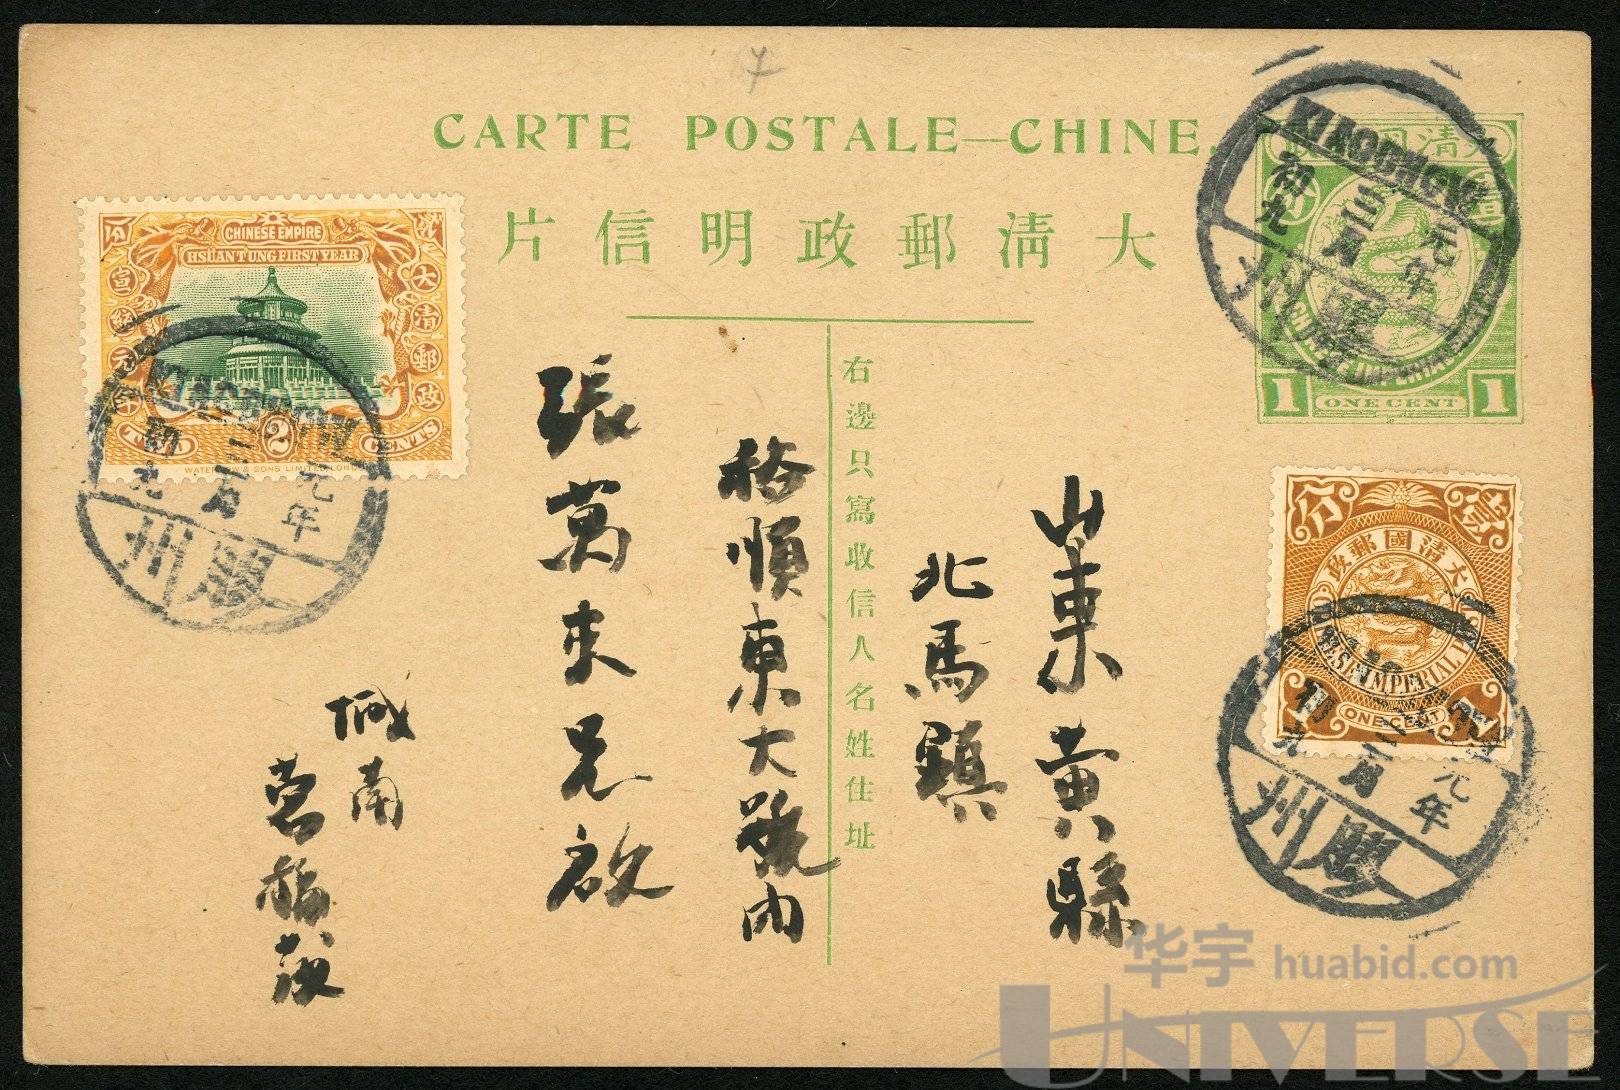 7
CARTE POSTALE—CHINE.
大清郵政明信片
右邊只寫收信人名姓住址
CHINESE EMPIRE
HSUANTUNG FIRST YEAR
大清郵政
宣統元年
2
TWO CENTS
WATERLOW & SONS LIMITED, LONDON
元年
三月
初九
膠州
KIAOCHOW
元年
三月
初九
膠州
1 ONE CENT 1
大清國郵政
壹分
CHINESE IMPERIAL POST
ONE CENT
元年
三月
初九
膠州
山東黄縣
北馬鎮
裕順東大號內
張萬来兄啟
南
华宇 huabid.com
UNIVERSE